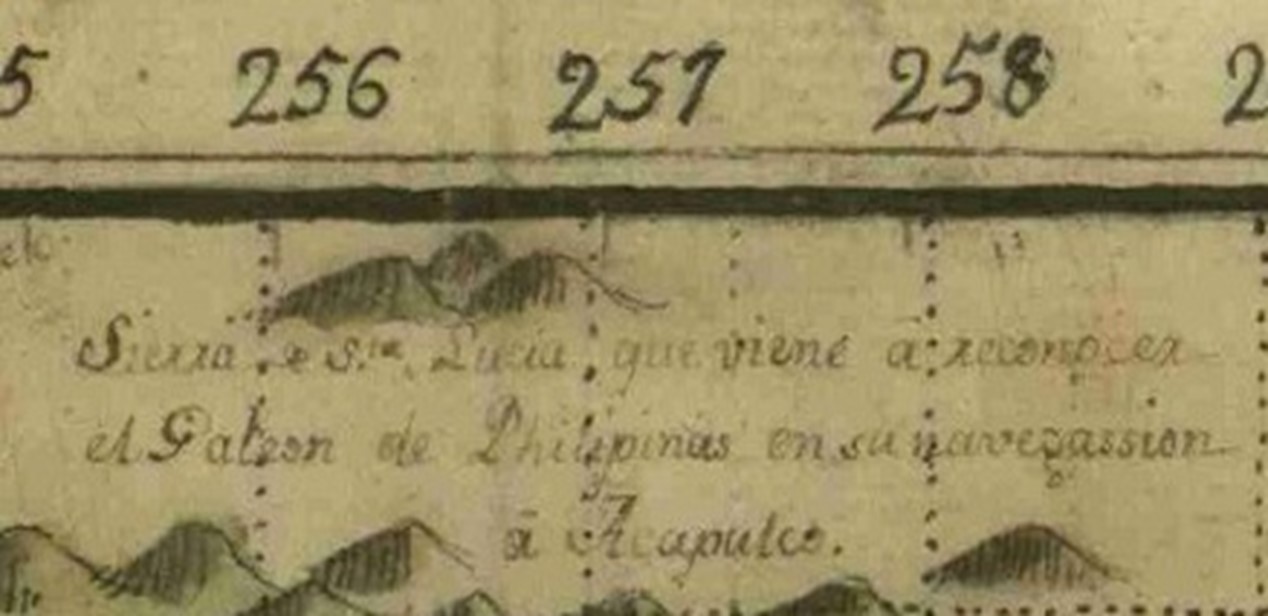 5 256 257 258 2
Sierra de S.ta Lucia, que viene a reconocer
el Galeon de Philipinas en su navegassion
â Acapulco.